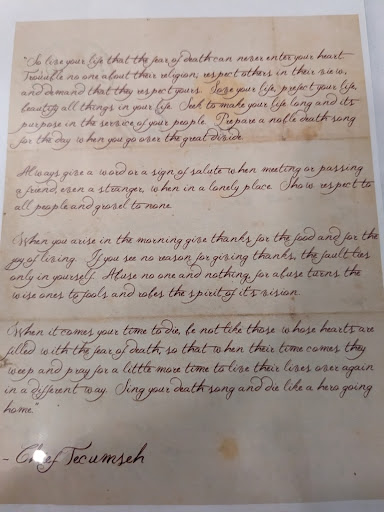 "So live your life that the fear of death can never enter your heart.
Trouble no one about their religion; respect others in their view,
and demand that they respect yours. Love your life, perfect your life,
beautify all things in your life. Seek to make your life long and its
purpose in the service of your people. Prepare a noble death song
for the day when you go over the great divide.
Always give a word or a sign of salute when meeting or passing
a friend, even a stranger, when in a lonely place. Show respect to
all people and grovel to none.
When you arise in the morning give thanks for the food and for the
joy of living. If you see no reason for giving thanks, the fault lies
only in yourself. Abuse no one and nothing, for abuse turns the
wise ones to fools and robs the spirit of its vision.
When it comes your time to die, be not like those whose hearts are
filled with the fear of death, so that when their time comes they
weep and pray for a little more time to live their lives over again
in a different way. Sing your death song and die like a hero going
home."
- Chief Tecumseh